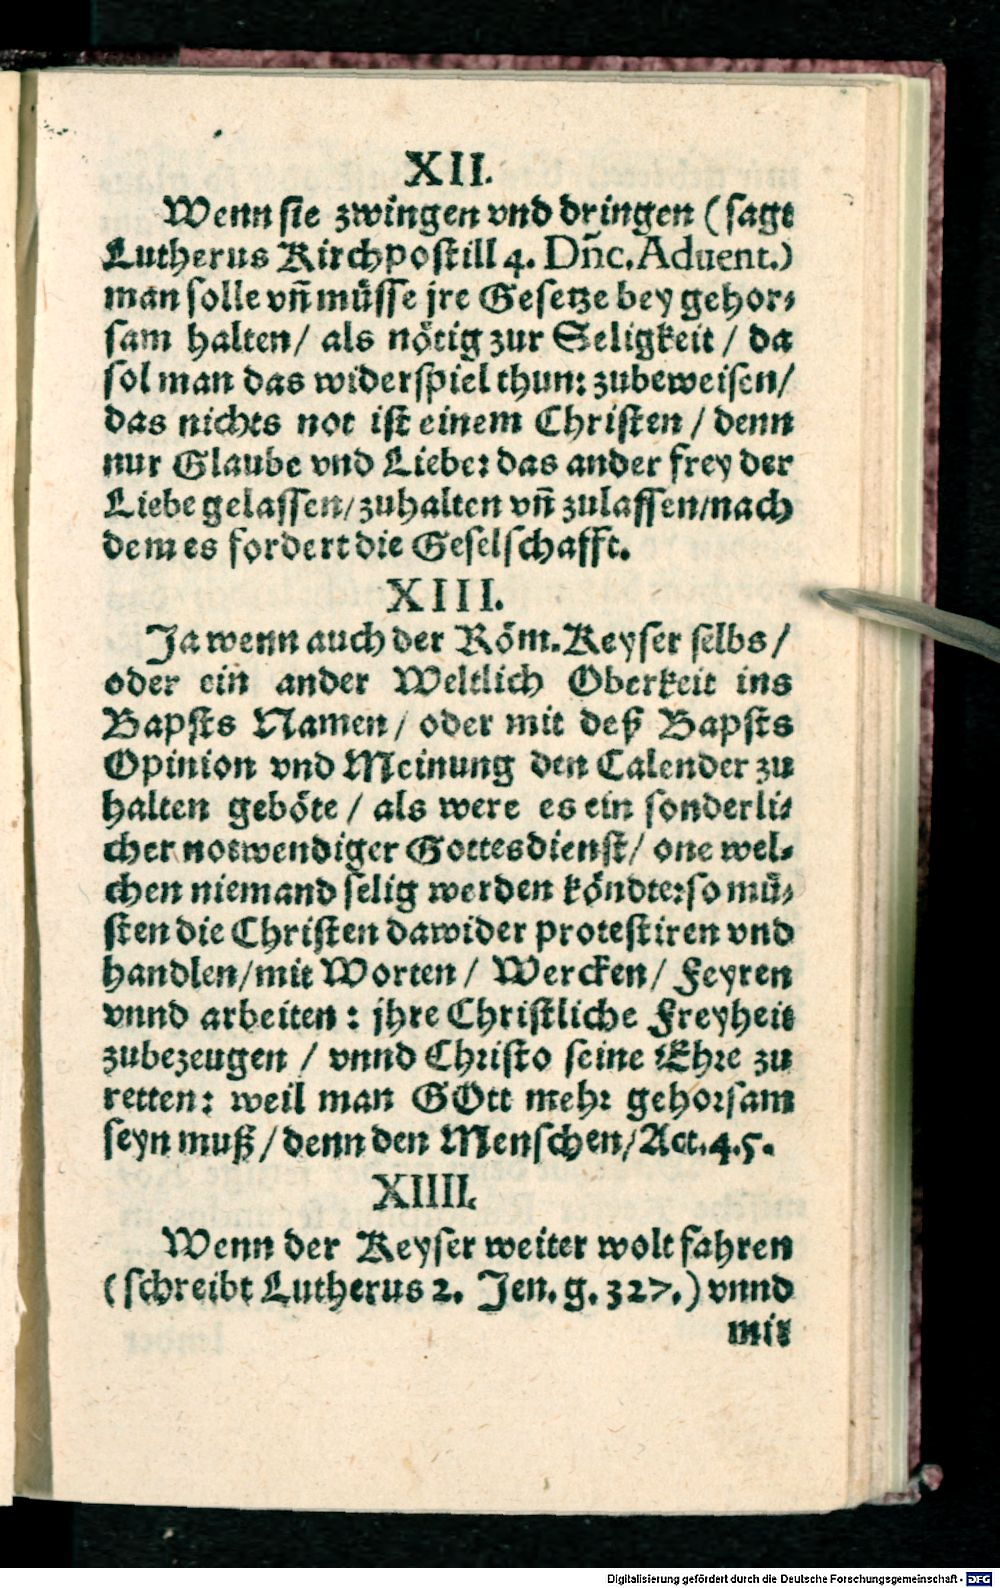 XII.
Wenn sie zwingen vnd dringen (sagt
Lutherus Kirchpostill 4. Dñc. Aduent.)
man solle vñ müsse jre Gesetze bey gehor-
sam halten/ als nötig zur Seligkeit/ da
sol man das widerspiel thun: zubeweisen/
das nichts not ist einem Christen/ denn
nur Glaube vnd Liebe: das ander frey der
Liebe gelassen/zuhalten vñ zulassen/nach
dem es fordert die Geselschafft.
XIII.
Ja wenn auch der Röm. Keyser selbs/
oder ein ander Weltlich Oberkeit ins
Bapsts Namen/ oder mit deß Bapsts
Opinion vnd Meinung den Calender zu
halten geböte/ als were es ein sonderli-
cher notwendiger Gottesdienst/ one wel-
chen niemand selig werden köndte: so mü-
sten die Christen dawider protestiren vnd
handlen/mit Worten/ Wercken/ Feyren
vnnd arbeiten: jhre Christliche Freyheit
zubezeugen/ vnnd Christo seine Ehre zu
retten: weil man GOtt mehr gehorsam
seyn muß/denn den Menschen/Act.4.5.
XIIII.
Wenn der Keyser weiter wolt fahren
(schreibt Lutherus 2. Jen. g. 327.) vnnd
mit
Digitalisierung gefördert durch die Deutsche Forschungsgemeinschaft - DFG